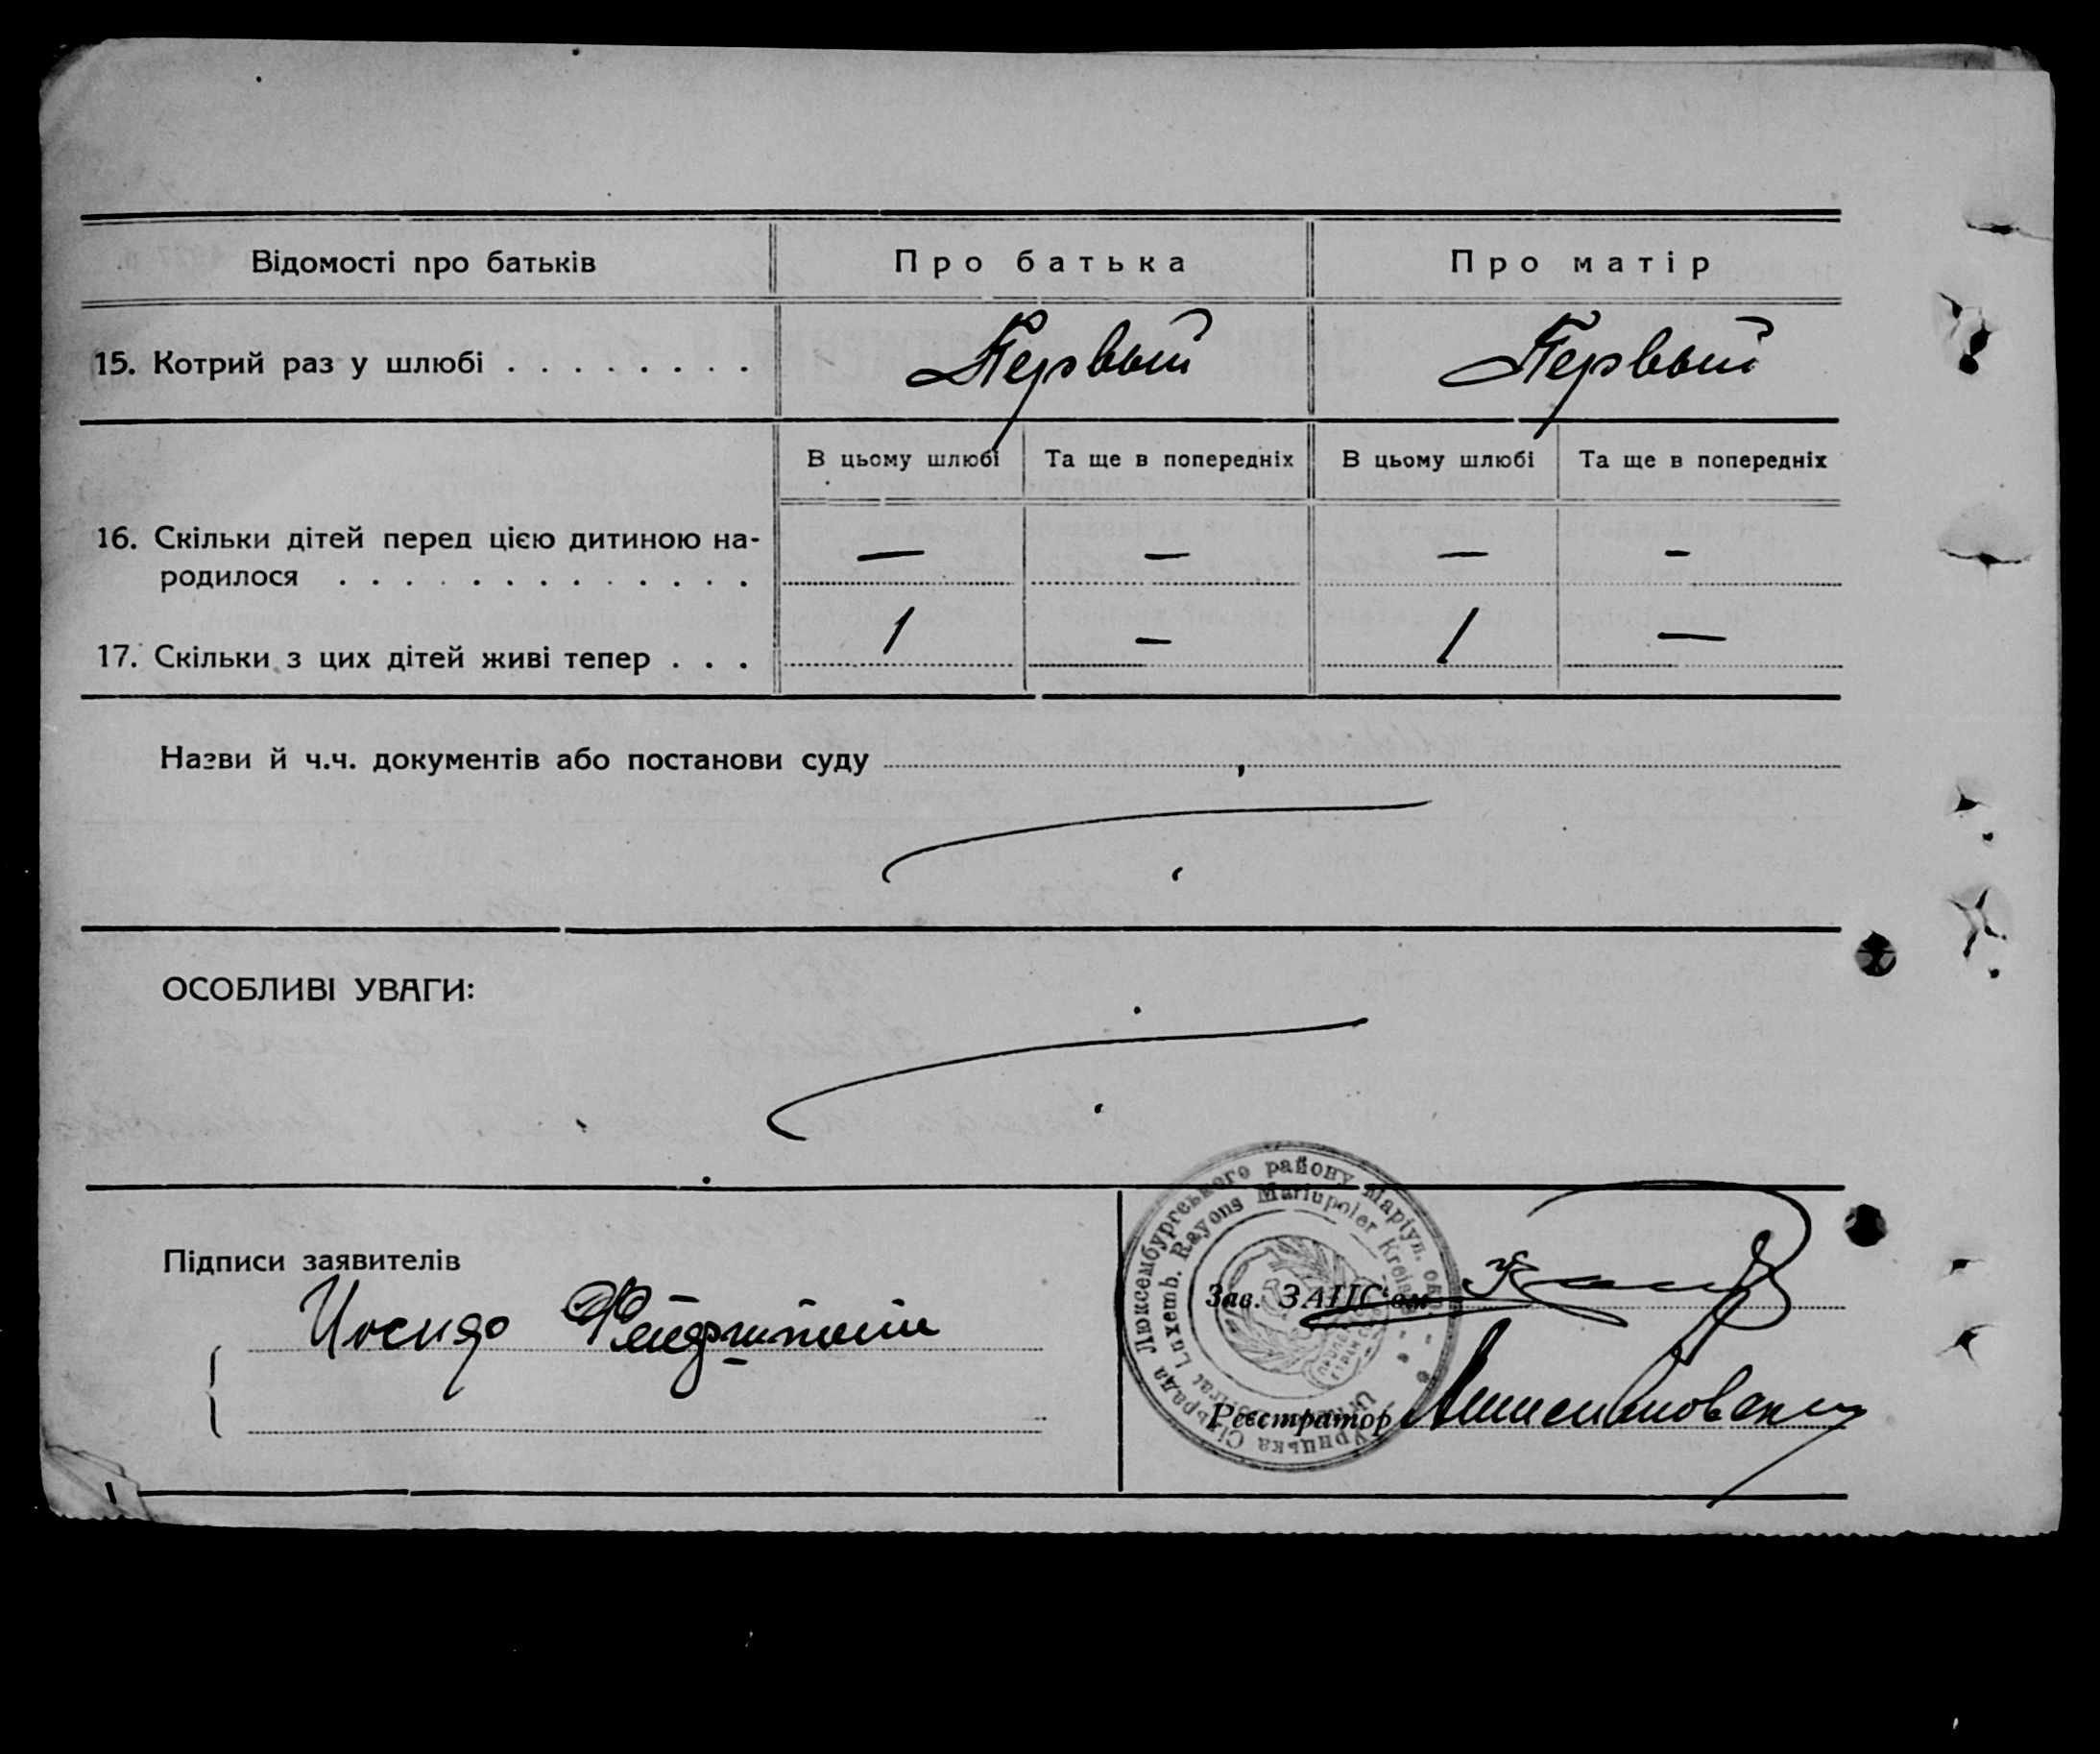 Відомості про батьків Про батька Про матір
15. Котрий раз у шлюбі . . . . . . . . Первый Первый
В цьому шлюбі Та ще в попередніх В цьому шлюбі Та ще в попередніх
16. Скільки дітей перед цією дитиною на- — — — -
родилося . . . . . . . . . . . . .
17. Скільки з цих дітей живі тепер . . . 1 — 1 —
Назви й ч.ч. документів або постанови суду
ОСОБЛИВІ УВАГИ:
Підписи заявителів
Зав. ЗАПС'ом
Реєстратор
Сільрада Люксембургського району Маріуп. окр.
Luxemb. Rayons Mariupoler Kreises